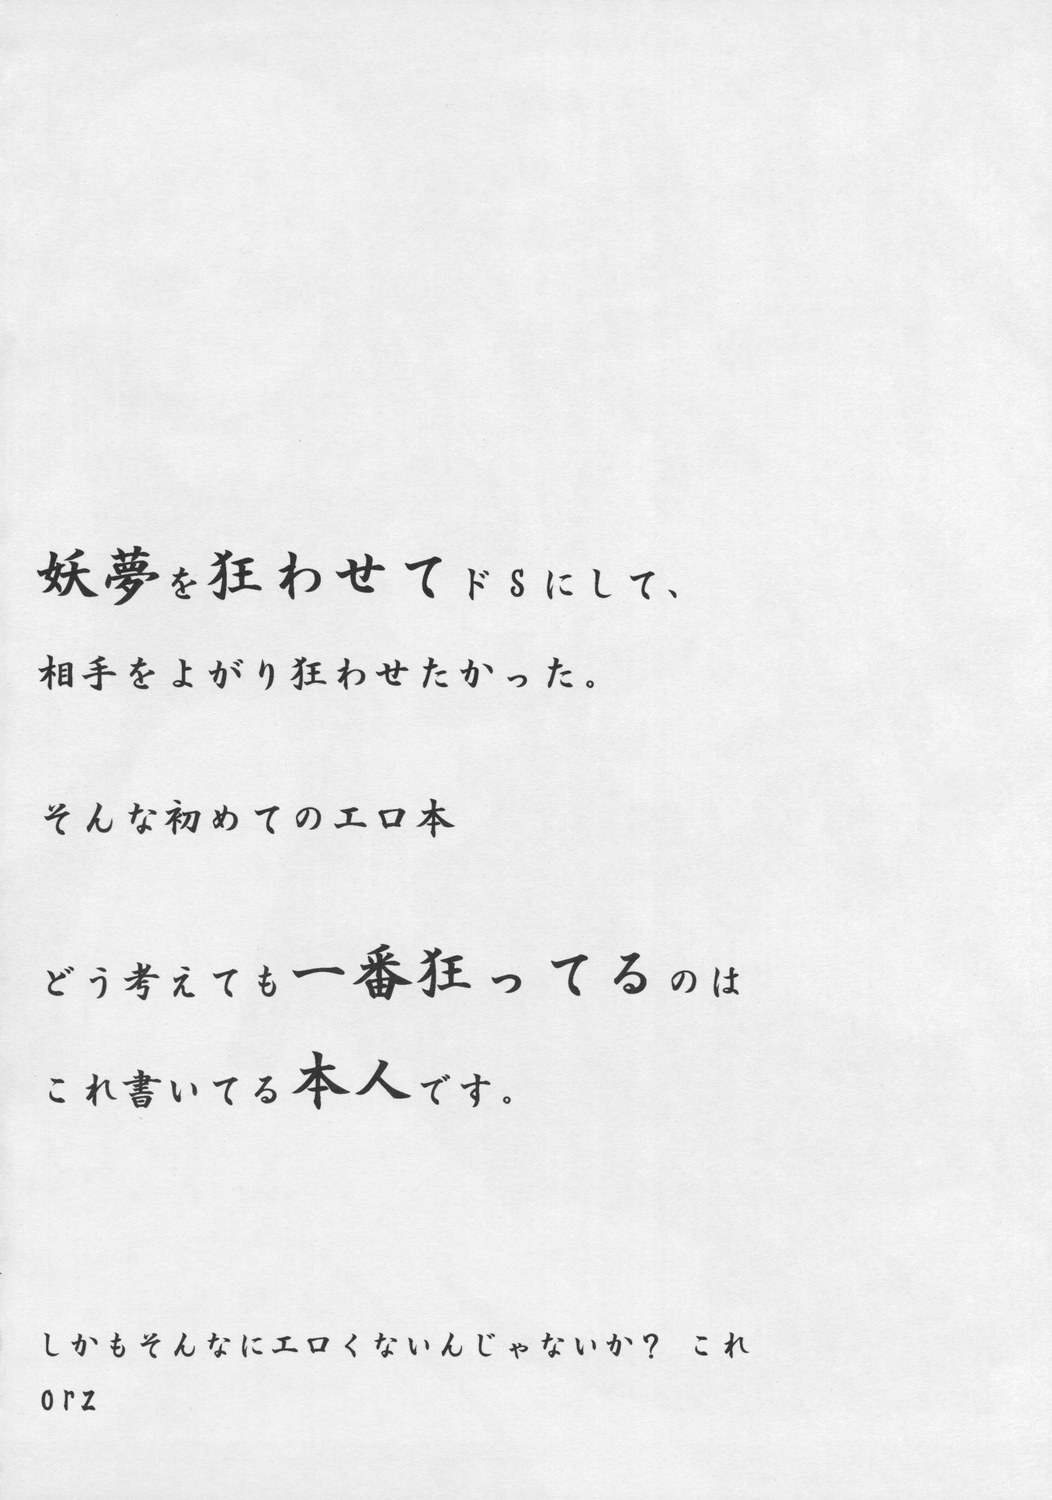 妖夢を狂わせてドSにして、
相手をよがり狂わせたかった。
そんな初めてのエロ本
どう考えても一番狂ってるのは
これ書いてる本人です。
しかもそんなにエロくないんじゃないか? これ
orz